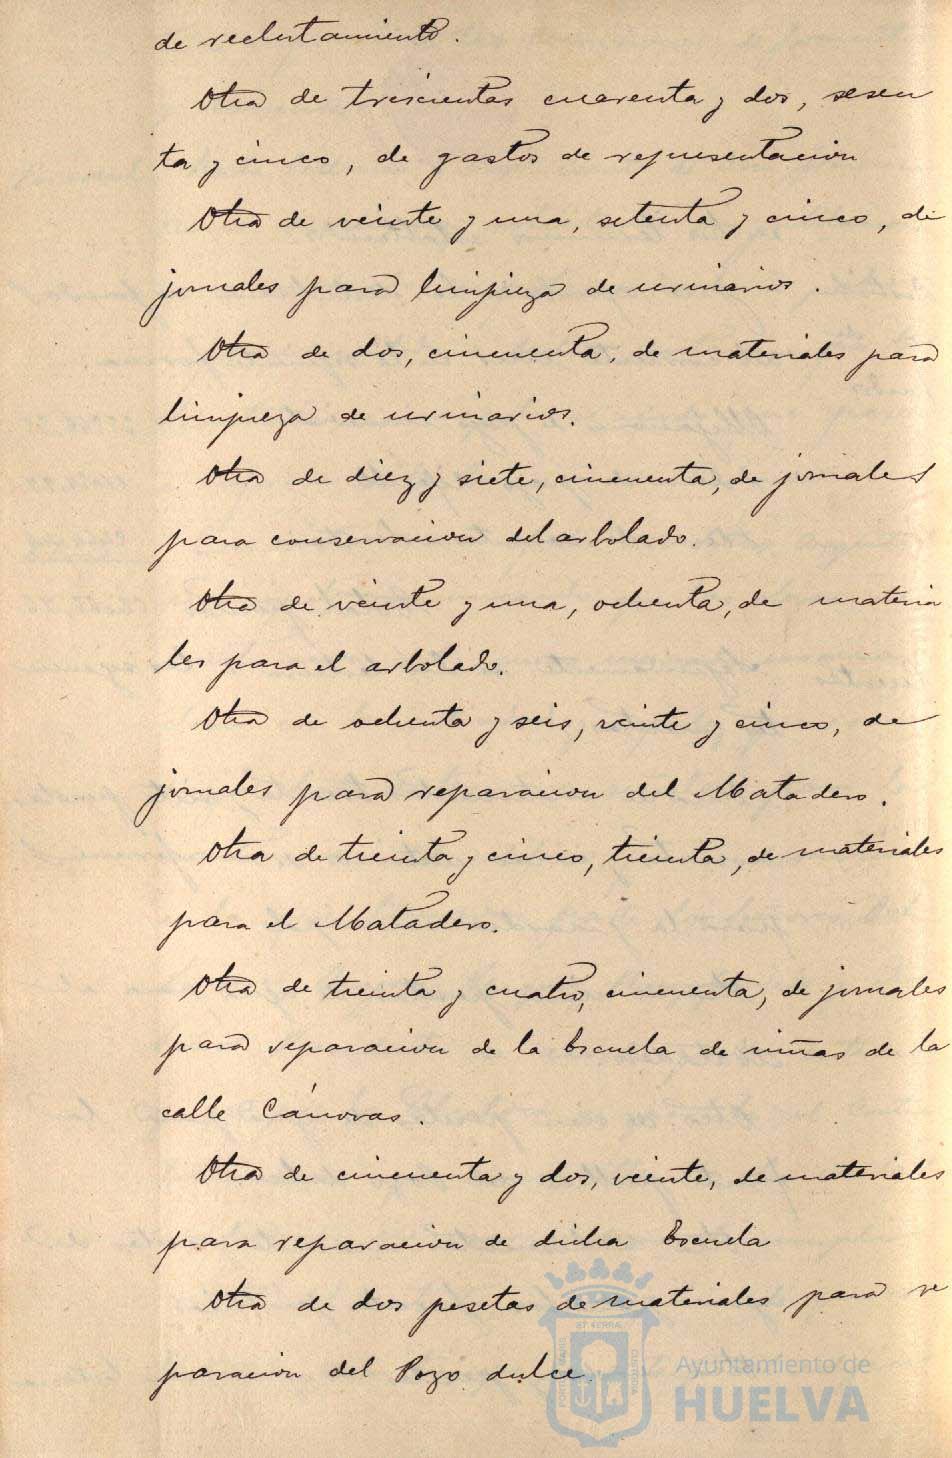 de reclutamiento.
Otra de trescientas cuarenta y dos, sesen
ta y cinco, de gastos de representacion
Otra de veinte y una, setenta y cinco, de
jornales para limpieza de urinarios.
Otra de dos, cincuenta, de materiales para
limpieza de urinarios.
Otra de diez y siete, cincuenta, de jornales
para conservacion del arbolado.
Otra de veinte y una, ochenta, de materia
les para el arbolado.
Otra de ochenta y seis, veinte y cinco, de
jornales para reparacion del Matadero.
Otra de treinta y cinco, treinta, de materiales
para el Matadero.
Otra de treinta y cuatro, cincuenta, de jornales
para reparacion de la Escuela de niñas de la
calle Cánovas.
Otra de cincuenta y dos, veinte, de materiales
para reparacion de dicha Escuela
Otra de dos pesetas de materiales para re
paracion del Pozo dulce.
PORTUS MARIS
ET TERRAE
CUSTODIA
Ayuntamiento de
HUELVA